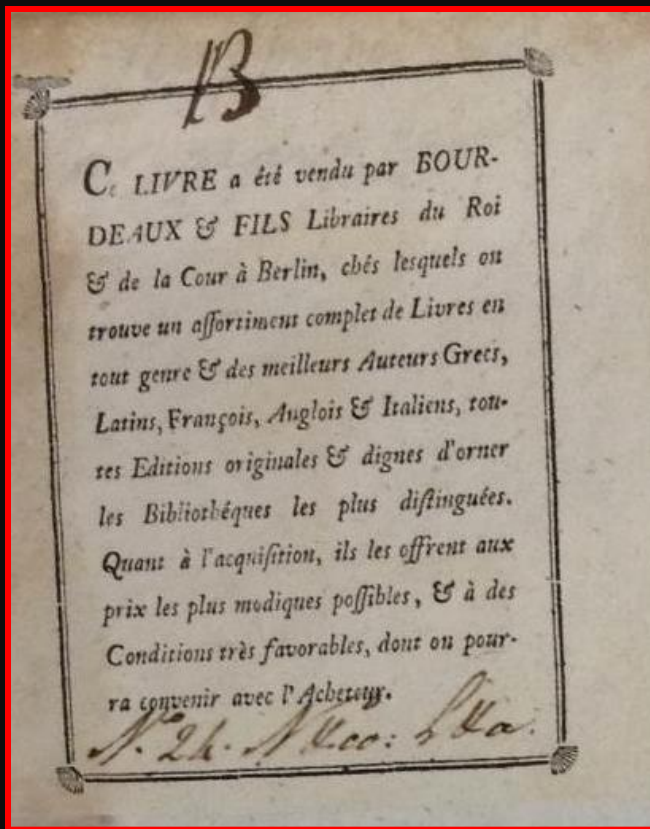 B
Ce LIVRE a été vendu par BOUR-
DEAUX & FILS Libraires du Roi
& de la Cour à Berlin, chés lesquels on
trouve un aſſortiment complet de Livres en
tout genre & des meilleurs Auteurs Grecs,
Latins, François, Anglois & Italiens, tou-
tes Editions originales & dignes d'orner
les Bibliothéques les plus diſtinguées.
Quant à l'acquiſition, ils les offrent aux
prix les plus modiques poſſibles, & à des
Conditions très favorables, dont on pour-
ra convenir avec l'Acheteur.
N.º 24.